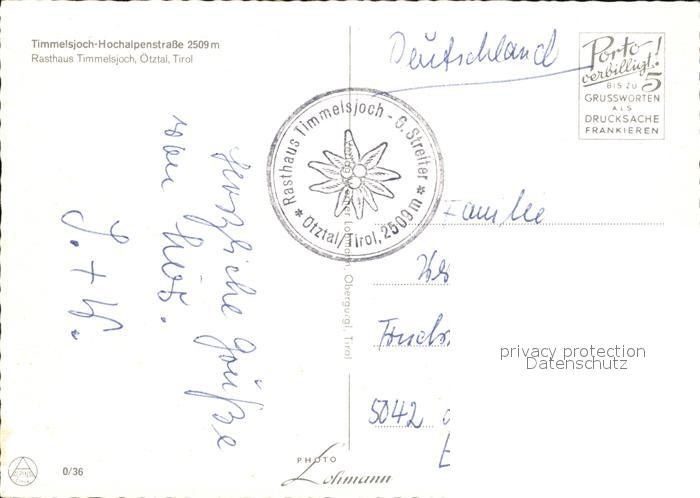 Timmelsjoch-Hochalpenstraße 2509 m
Rasthaus Timmelsjoch, Ötztal, Tirol
Deutschland
Porto
verbilligt!
BIS ZU 5
GRUSSWORTEN
ALS
DRUCKSACHE
FRANKIEREN
Rasthaus Timmelsjoch - G. Streiter
* Ötztal/Tirol, 2509 m *
Lohmann, Obergurgl, Tirol
Herzliche Grüße
von hier.
J. + K.
Familie
5042
privacy protection
Datenschutz
0/36
PHOTO
Lohmann